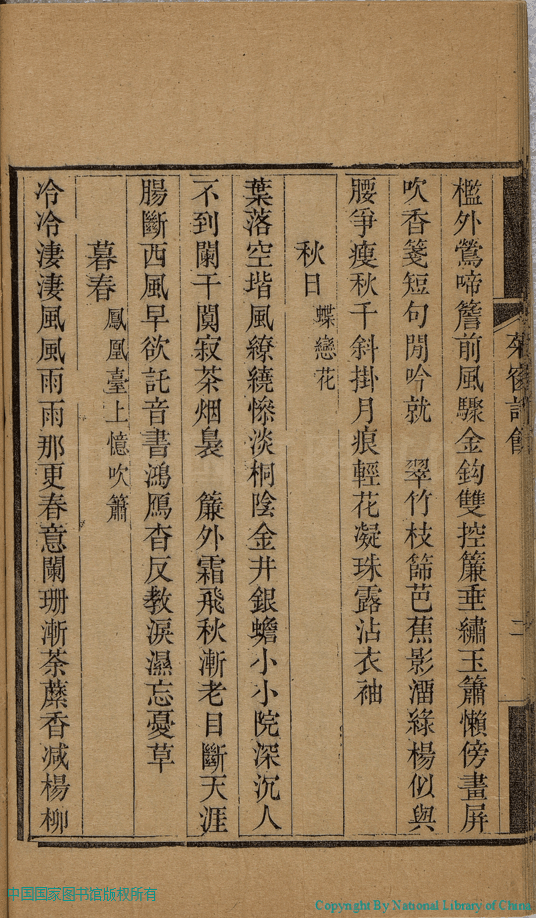 檻外鶯啼簷前風驟金鈎雙控簾垂繡玉簫懶傍畫屏
吹香箋短句閒吟就　翠竹枝篩芭蕉影溜綠楊似與
腰爭瘦秋千斜掛月痕輕花凝珠露沾衣袖
秋日　蝶戀花
葉落空堦風繚繞慘淡桐陰金井銀蟾小小院深沉人
不到闌干闃寂茶烟裊　簾外霜飛秋漸老目斷天涯
腸斷西風早欲託音書鴻鴈杳反教淚濕忘憂草
暮春　鳳凰臺上憶吹簫
冷冷淒淒風風雨雨那更春意闌珊漸荼蘼香减楊柳
二
中国国家图书馆版权所有
Copyright By National Library of China